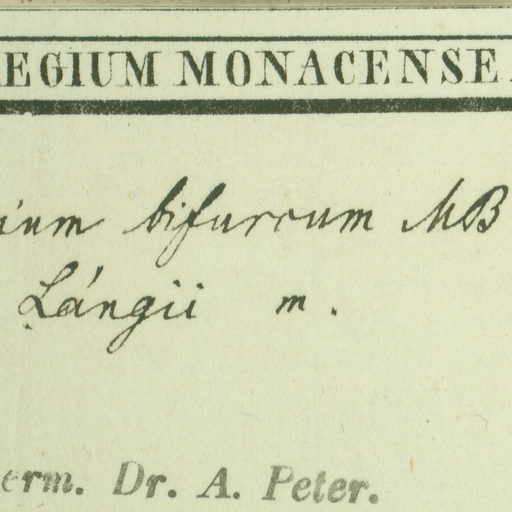 EGIUM MONACENSE.
ium bifurcum MB
Lángii m.
erm. Dr. A. Peter.